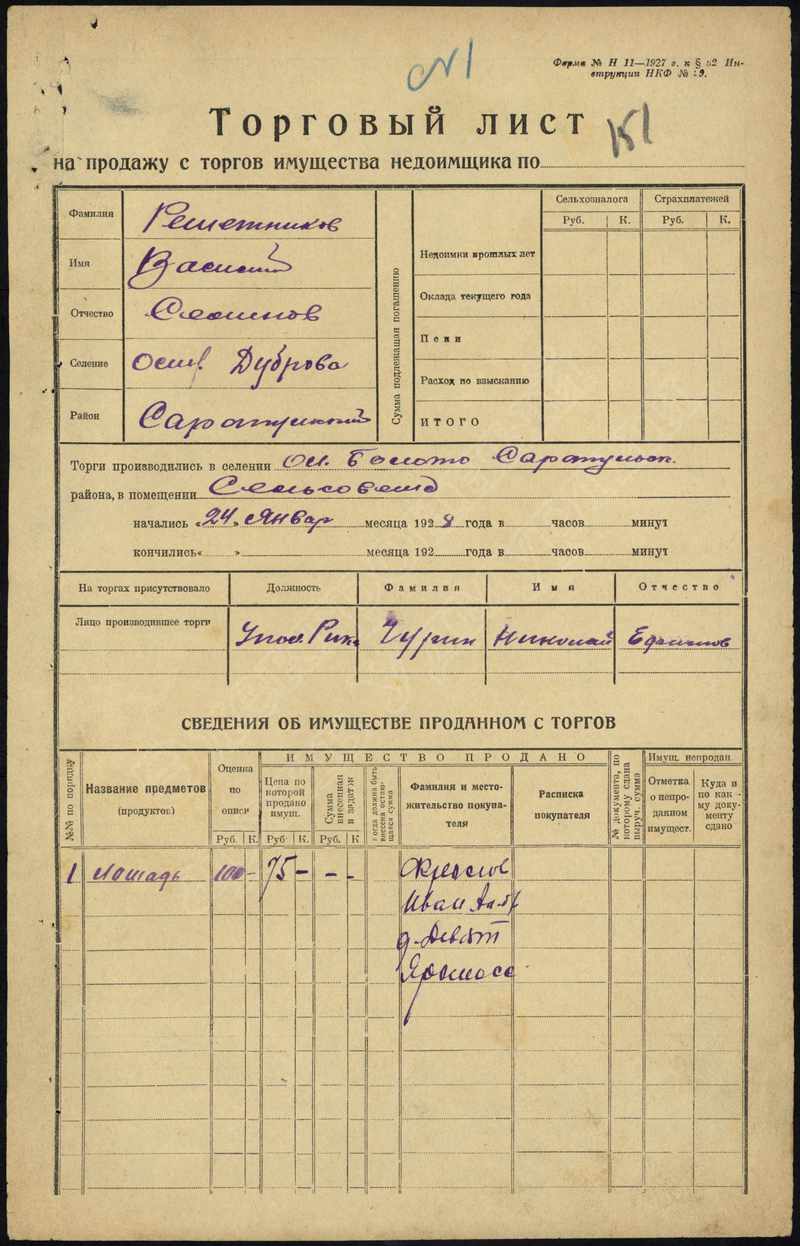 №1
Форма № Н 11—1927 г. к § 52 Ин-
струкции НКФ №
Торговый лист
на продажу с торгов имущества недоимщика по
Фамилия Решетников
Имя Василий
Отчество Семинов
Селение Осин Дуброва
Район Сарапульский
Сумма подлежащая погашению
Сельхозналога Страхплатежей
Руб. К. Руб. К.
Недоимки прошлых лет
Оклада текущего года
Пени
Расход по взысканию
ИТОГО
Торги производились в селении Болото Сарапульск.
района, в помещении Сельсовета
начались „24„ Январ месяца 1928 года в часов минут
кончились „ „ месяца 192 года в часов минут
На торгах присутствовало Должность Фамилия Имя Отчество
Лицо производившее торги Упол. Рика Чурин Николай Ефимов
СВЕДЕНИЯ ОБ ИМУЩЕСТВЕ ПРОДАННОМ С ТОРГОВ
№№ по порядку
Название предметов
(продуктов)
Оценка
по
описи
Руб. К.
ИМУЩЕСТВО ПРОДАНО
Цена по
которой
продано
имущ.
Руб. К.
Сумма
внесенная
в задаток
Руб. К
Когда должна быть
внесена остаю-
щаяся сумма
Фамилия и место-
жительство покупа-
теля
Расписка
покупателя
№ документа, по
которому сдана
выруч. сумма
Имущ. непродан.
Отметка
о непро-
данном
имущест.
Куда и
по как -
му доку-
менту
сдано
1 Лошадь 100 — 75 — — -
Иван
д.